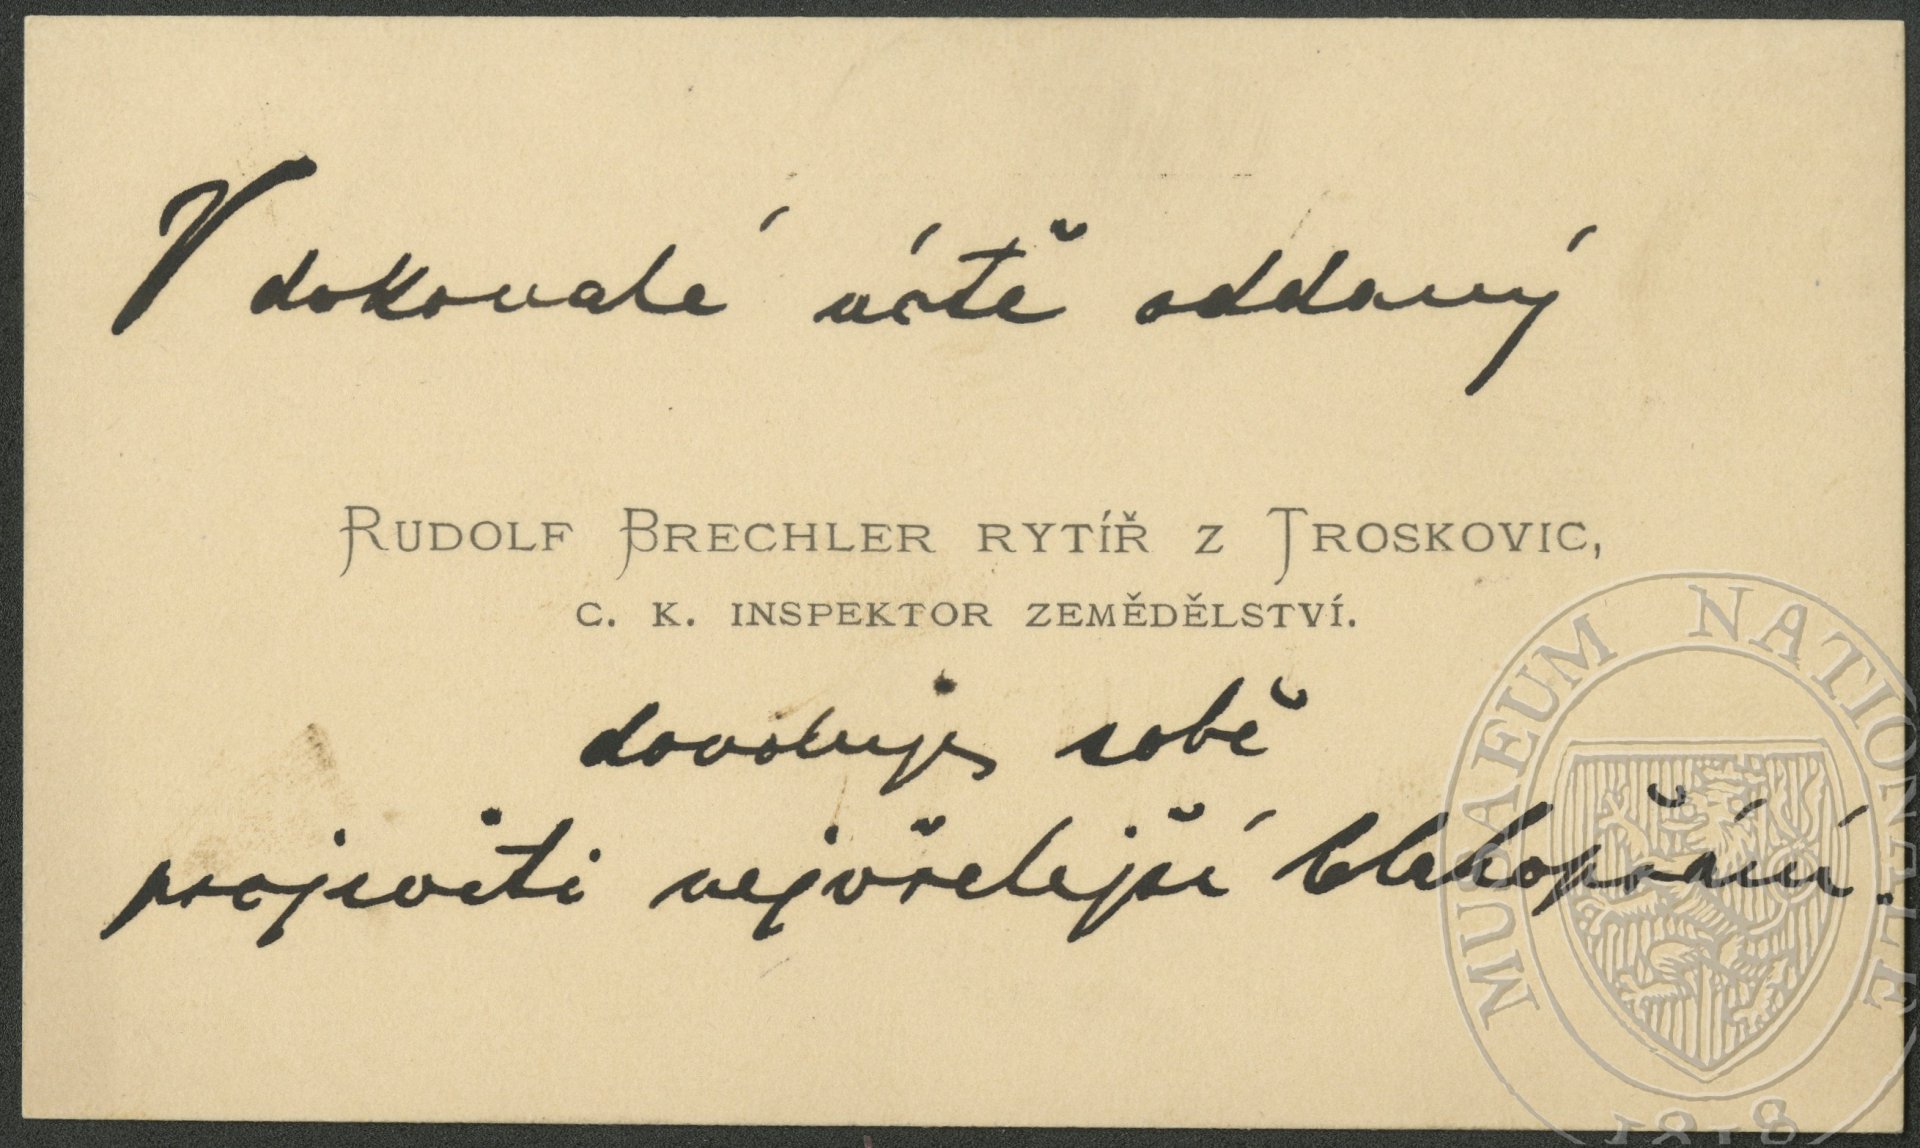 V dokonalé úctě oddaný
RUDOLF BRECHLER RYTÍŘ Z TROSKOVIC,
C. K. INSPEKTOR ZEMĚDĚLSTVÍ.
dovoluje sobě
projeviti nejvřelejší blahopřání.
MUSAEUM NATIONALE
1818